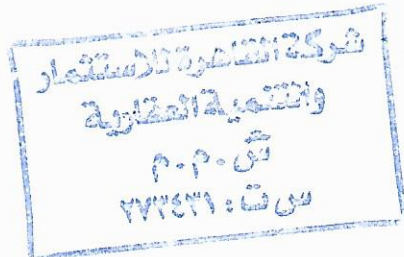 شركة القاهرة للاستثمار
والتنمية العقارية
ش.م.م
س ت : ٢٧٣٤٣١